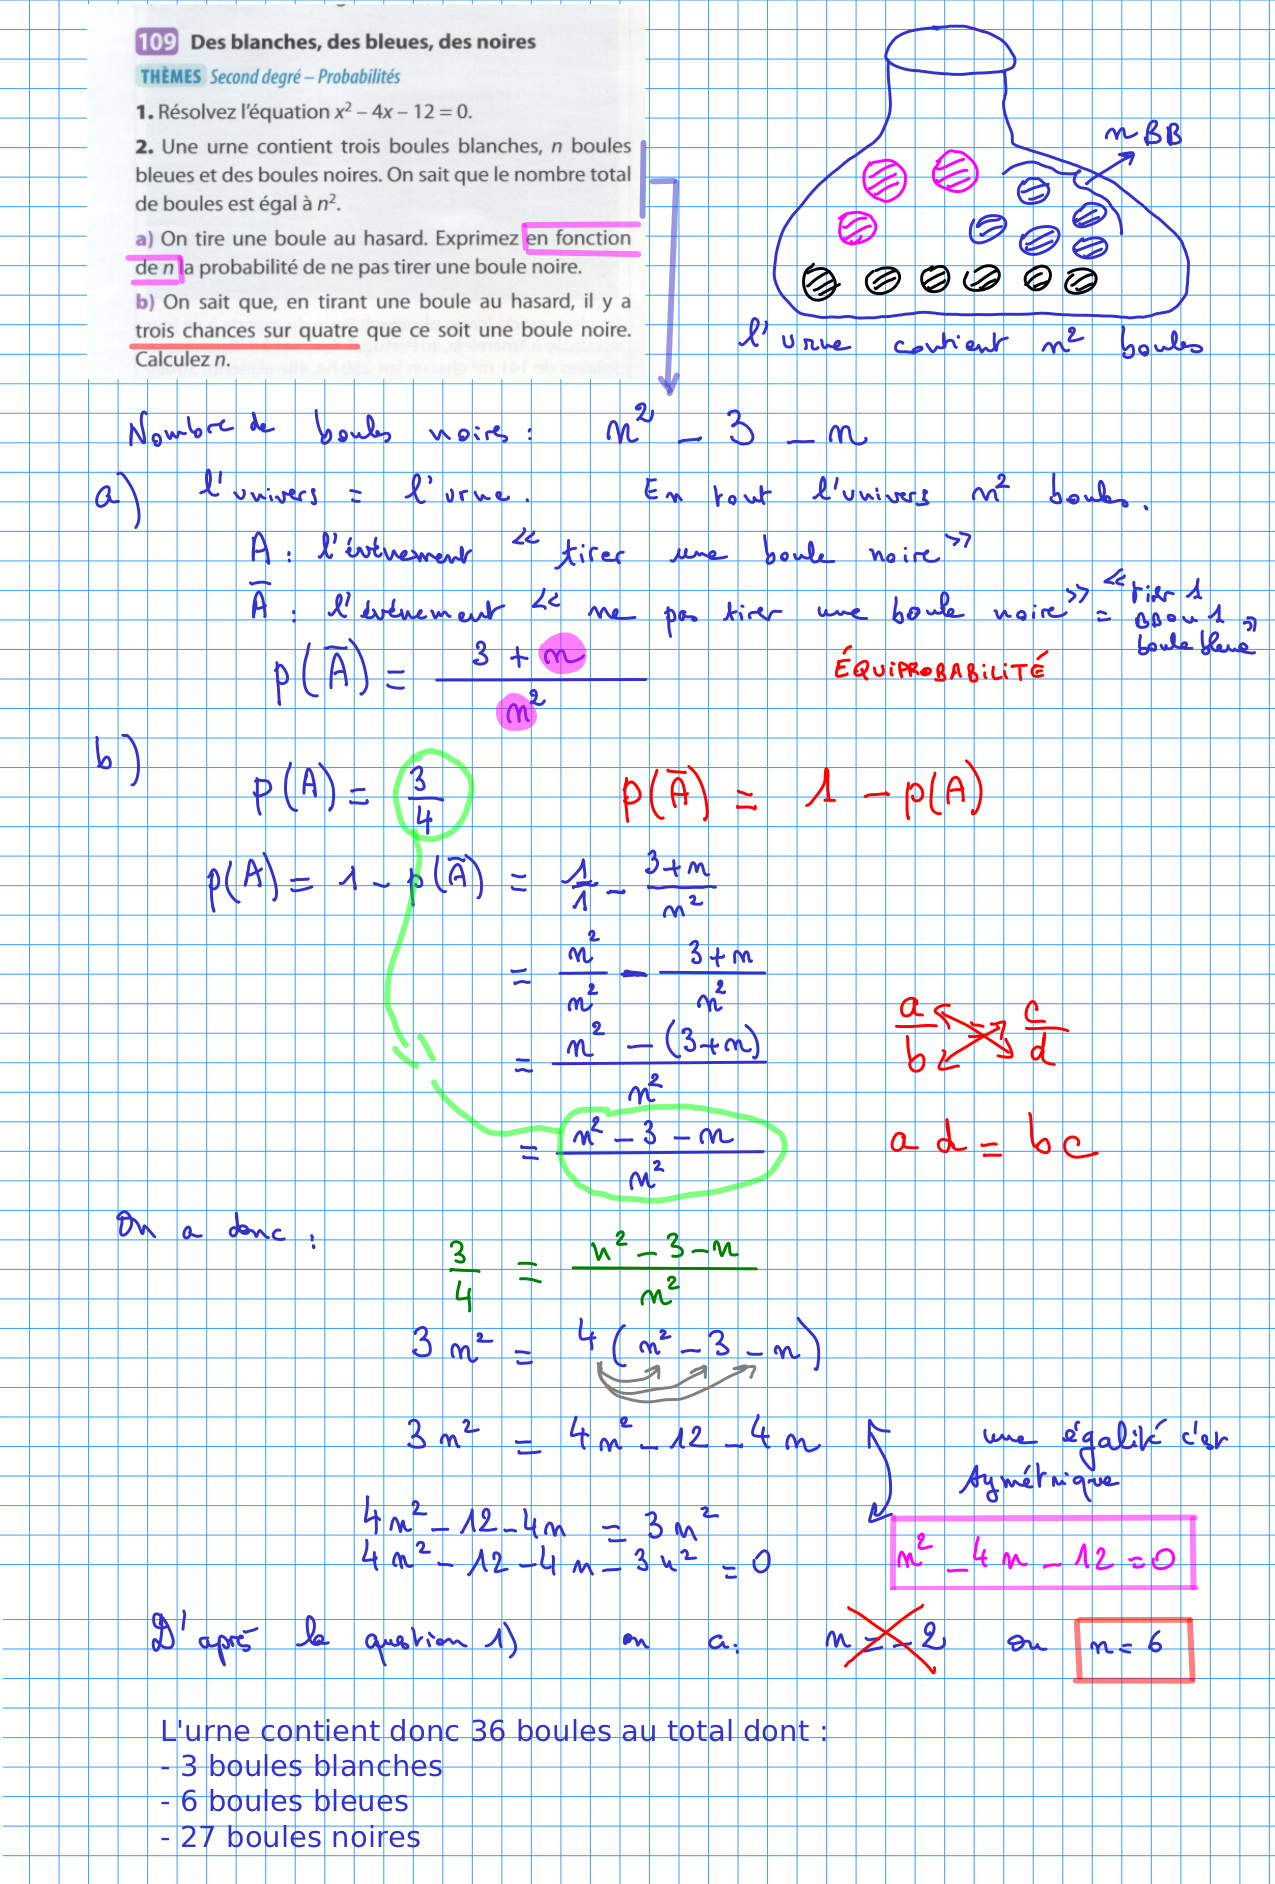 109 Des blanches, des bleues, des noires
THÈMES Second degré – Probabilités
1. Résolvez l'équation x² – 4x – 12 = 0.
2. Une urne contient trois boules blanches, n boules
bleues et des boules noires. On sait que le nombre total
de boules est égal à n².
a) On tire une boule au hasard. Exprimez en fonction
de n la probabilité de ne pas tirer une boule noire.
b) On sait que, en tirant une boule au hasard, il y a
trois chances sur quatre que ce soit une boule noire.
Calculez n.
n BB
l'urne contient n² boules
Nombre de boules noires : n² – 3 – n
a) l'univers = l'urne. En tout l'univers n² boules.
A : l'événement << tirer une boule noire >>
A̅ : l'événement << ne pas tirer une boule noire >> = << tirer 1
BB ou 1
boule bleue >>
p(A̅) = (3 + n)/n²
ÉQUIPROBABILITÉ
b) p(A) = 3/4
p(A̅) = 1 – p(A)
p(A) = 1 – p(A̅) = 1/1 – (3+n)/n²
= n²/n² – (3+n)/n²
a/b = c/d
= (n² – (3+n))/n²
ad = bc
= (n² – 3 – n)/n²
On a donc :
3/4 = (n² – 3 – n)/n²
3n² = 4(n² – 3 – n)
3n² = 4n² – 12 – 4n
une égalité c'est
symétrique
4n² – 12 – 4n = 3n²
4n² – 12 – 4n – 3n² = 0
n² – 4n – 12 = 0
D'après la question 1) on a : n = –2 ou n = 6
L'urne contient donc 36 boules au total dont :
- 3 boules blanches
- 6 boules bleues
- 27 boules noires